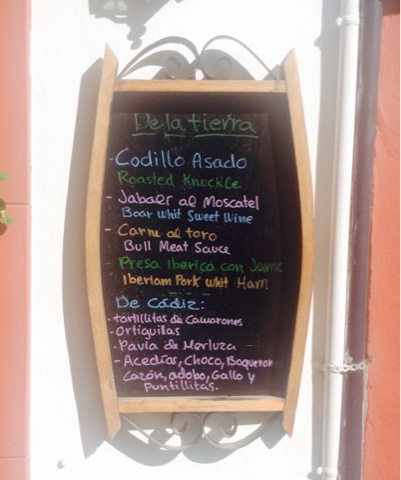 De la tierra
- Codillo Asado
Roasted Knuckle
- Jabalí al Moscatel
Boar whit Sweet Wine
- Carne al toro
Bull Meat Sauce
- Presa Iberica con Jamo
Iberiam Pork whit Ham
De Cádiz:
- tortillitas de Camarones
- Ortiguillas
- Pavia de Merluza
- Acedias, Choco, Boqueron
Cazón, adobo, Gallo y
Puntillitas.